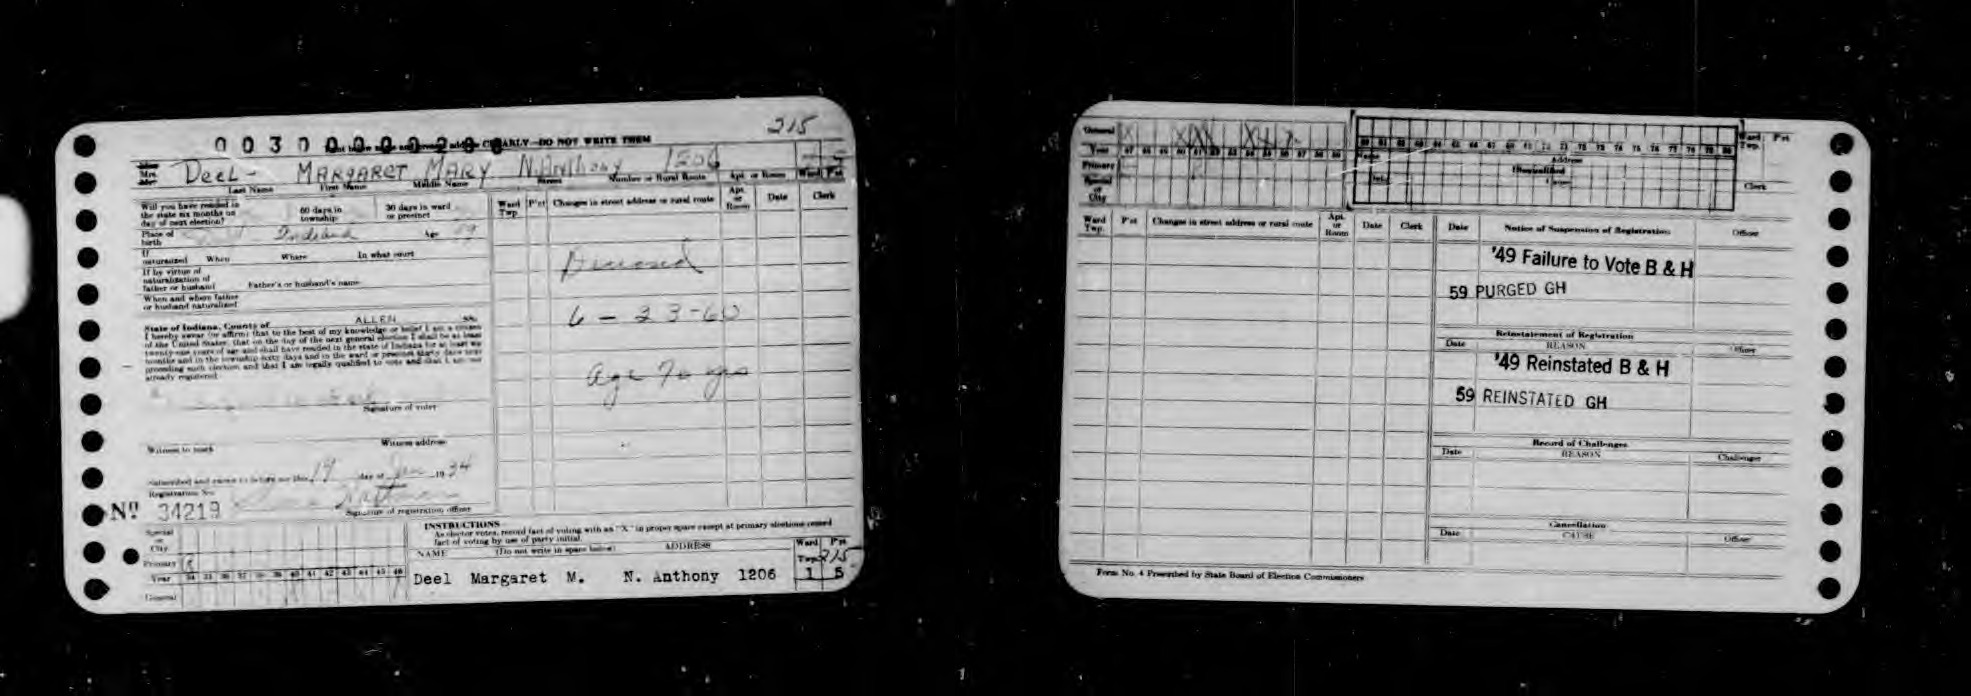 215
CLEARLY—DO NOT WRITE THEM
Deel - MARGARET MARY N. Anthony 1206
Last Name First Name Middle Name Street Number or Rural Route Apt. or Room Ward Pct
Will you have resided in the state six months on day of next election? 60 days in township 30 days in ward or precinct
Place of birth Indiana Age
If naturalized When Where In what court
If by virtue of naturalization of father or husband Father's or husband's name
When and where father or husband naturalized
State of Indiana, County of ALLEN SS:
I hereby swear (or affirm) that to the best of my knowledge or belief I am a citizen
of the United States, that on the day of the next general election I shall be at least
twenty-one years of age and shall have resided in the state of Indiana for at least six
months and in the township sixty days and in the ward or precinct thirty days next
preceding such election and that I am legally qualified to vote and that I am not
already registered
Signature of voter
Witness to mark Witness address
Subscribed and sworn to before me this 19 day of Jan 1934
Registration No.
No 34219
Signature of registration officer
Ward Twp. P'ct Changes in street address or rural route Apt. or Room Date Clerk
Deceased
6-23-60
Age 70 yrs
Special or City
Primary R
Year 34 35 36 37 38 39 40 41 42 43 44 45 46
General
INSTRUCTIONS
As elector votes, record fact of voting with an "X" in proper space except at primary elections record
fact of voting by use of party initial.
NAME (Do not write in space below) ADDRESS Ward Twp. P'ct
215
Deel Margaret M. N. Anthony 1206 1 5
General
Year
Primary
Special or City
Name Address
Disqualified
Date Cause
Ward Twp. P'ct
Clerk
Ward Twp. P'ct Changes in street address or rural route Apt. or Room Date Clerk
Date Notice of Suspension of Registration Officer
'49 Failure to Vote B & H
59 PURGED GH
Reinstatement of Registration
Date REASON Officer
'49 Reinstated B & H
59 REINSTATED GH
Record of Challenges
Date REASON Challenger
Cancellation
Date CAUSE Officer
Form No. 4 Prescribed by State Board of Election Commissioners